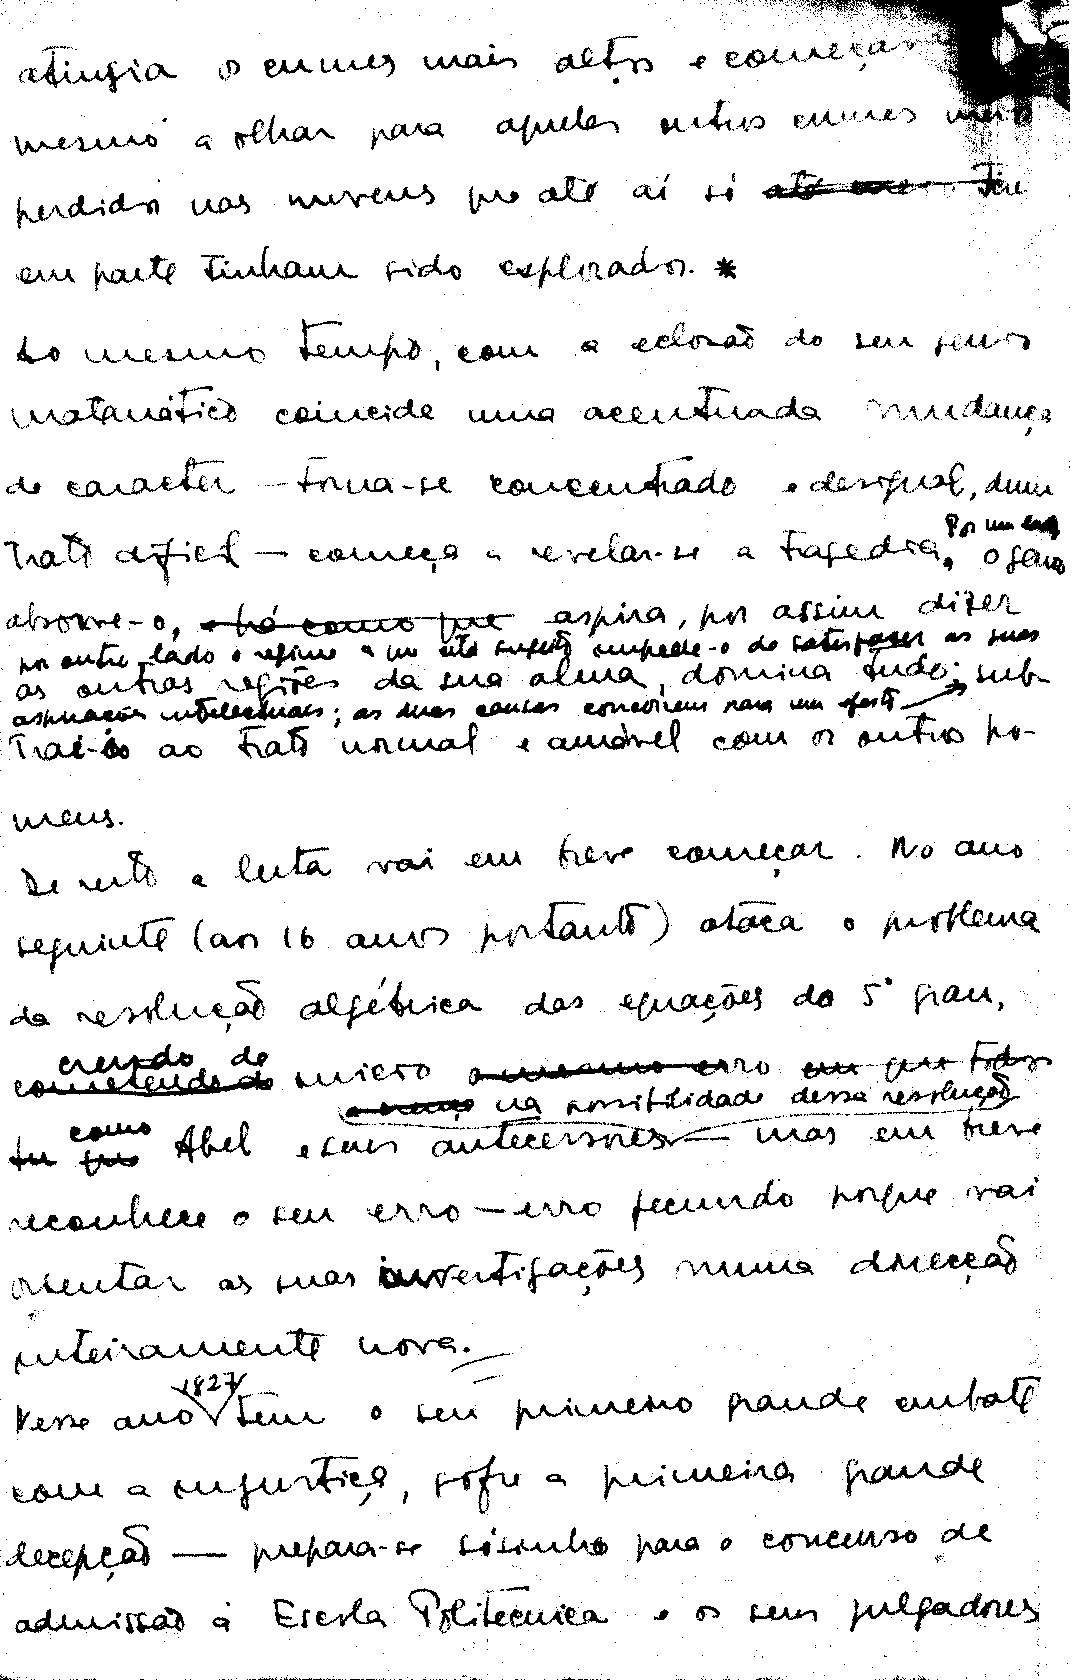 atingia os cumes mais altos e começava
mesmo a olhar para aqueles outros cumes meio
perdidos nas nuvens que até aí só
em parte tinham sido explorados. *
Ao mesmo tempo, com a eclosão do seu genio
matemático coincide uma acentuada mudança
de caracter – torna-se concentrado e desigual, dum
Por um lado
trato dificil – começa a revelar-se a tragedia, o genio
absorve-o, e há como que aspira, por assim dizer
por outro lado o regime a que está sujeito impede-o de satisfazer as suas
as outras regiões da sua alma, domina tudo; sub-
aspirações intelectuais; as duas causas concorrem para um efeito
trai-o ao trato normal e amável com os outros ho-
mens.
De resto a luta vai em breve começar. No ano
seguinte (aos 16 anos portanto) ataca o problema
da resolução algébrica das equações do 5° grau,
crendo de
cometendo de inicio o mesmo erro em que todos
na possibilidade dessa resolução
como
Abel e seus antecessores – mas em breve
reconhece o seu erro – erro fecundo porque vai
orientar as suas investigações numa direcção
inteiramente nova.
1827
Nesse ano tem o seu primeiro grande embate
com a injustiça, sofre a primeira grande
decepção – prepara-se sósinho para o concurso de
admissão á Escola Politécnica e os seus julgadores